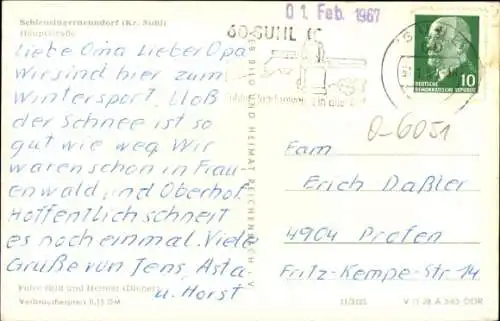 Schleusingerneundorf (Kr. Suhl)
Hauptstraße
Liebe Oma Lieber Opa
Wir sind hier zum
Wintersport. bloß
der Schnee ist so
gut wie weg. Wir
waren schon in Frau-
enwald und Oberhof.
Hoffentlich schneit
es noch einmal. Viele
Grüße von Jens, Asta
u. Horst
Foto: Bild und Heimat
Verbraucherpreis 0,15 DM
BILD UND HEIMAT REICHENBACH i. V.
01. Feb. 1967
60 SUHL
10
DEUTSCHE
DEMOKRATISCHE REPUBLIK
O-6051
Fam
Erich Daßler
4904 Profen
Fritz-Kempe-Str 14
V 11 28 A 540 DDR